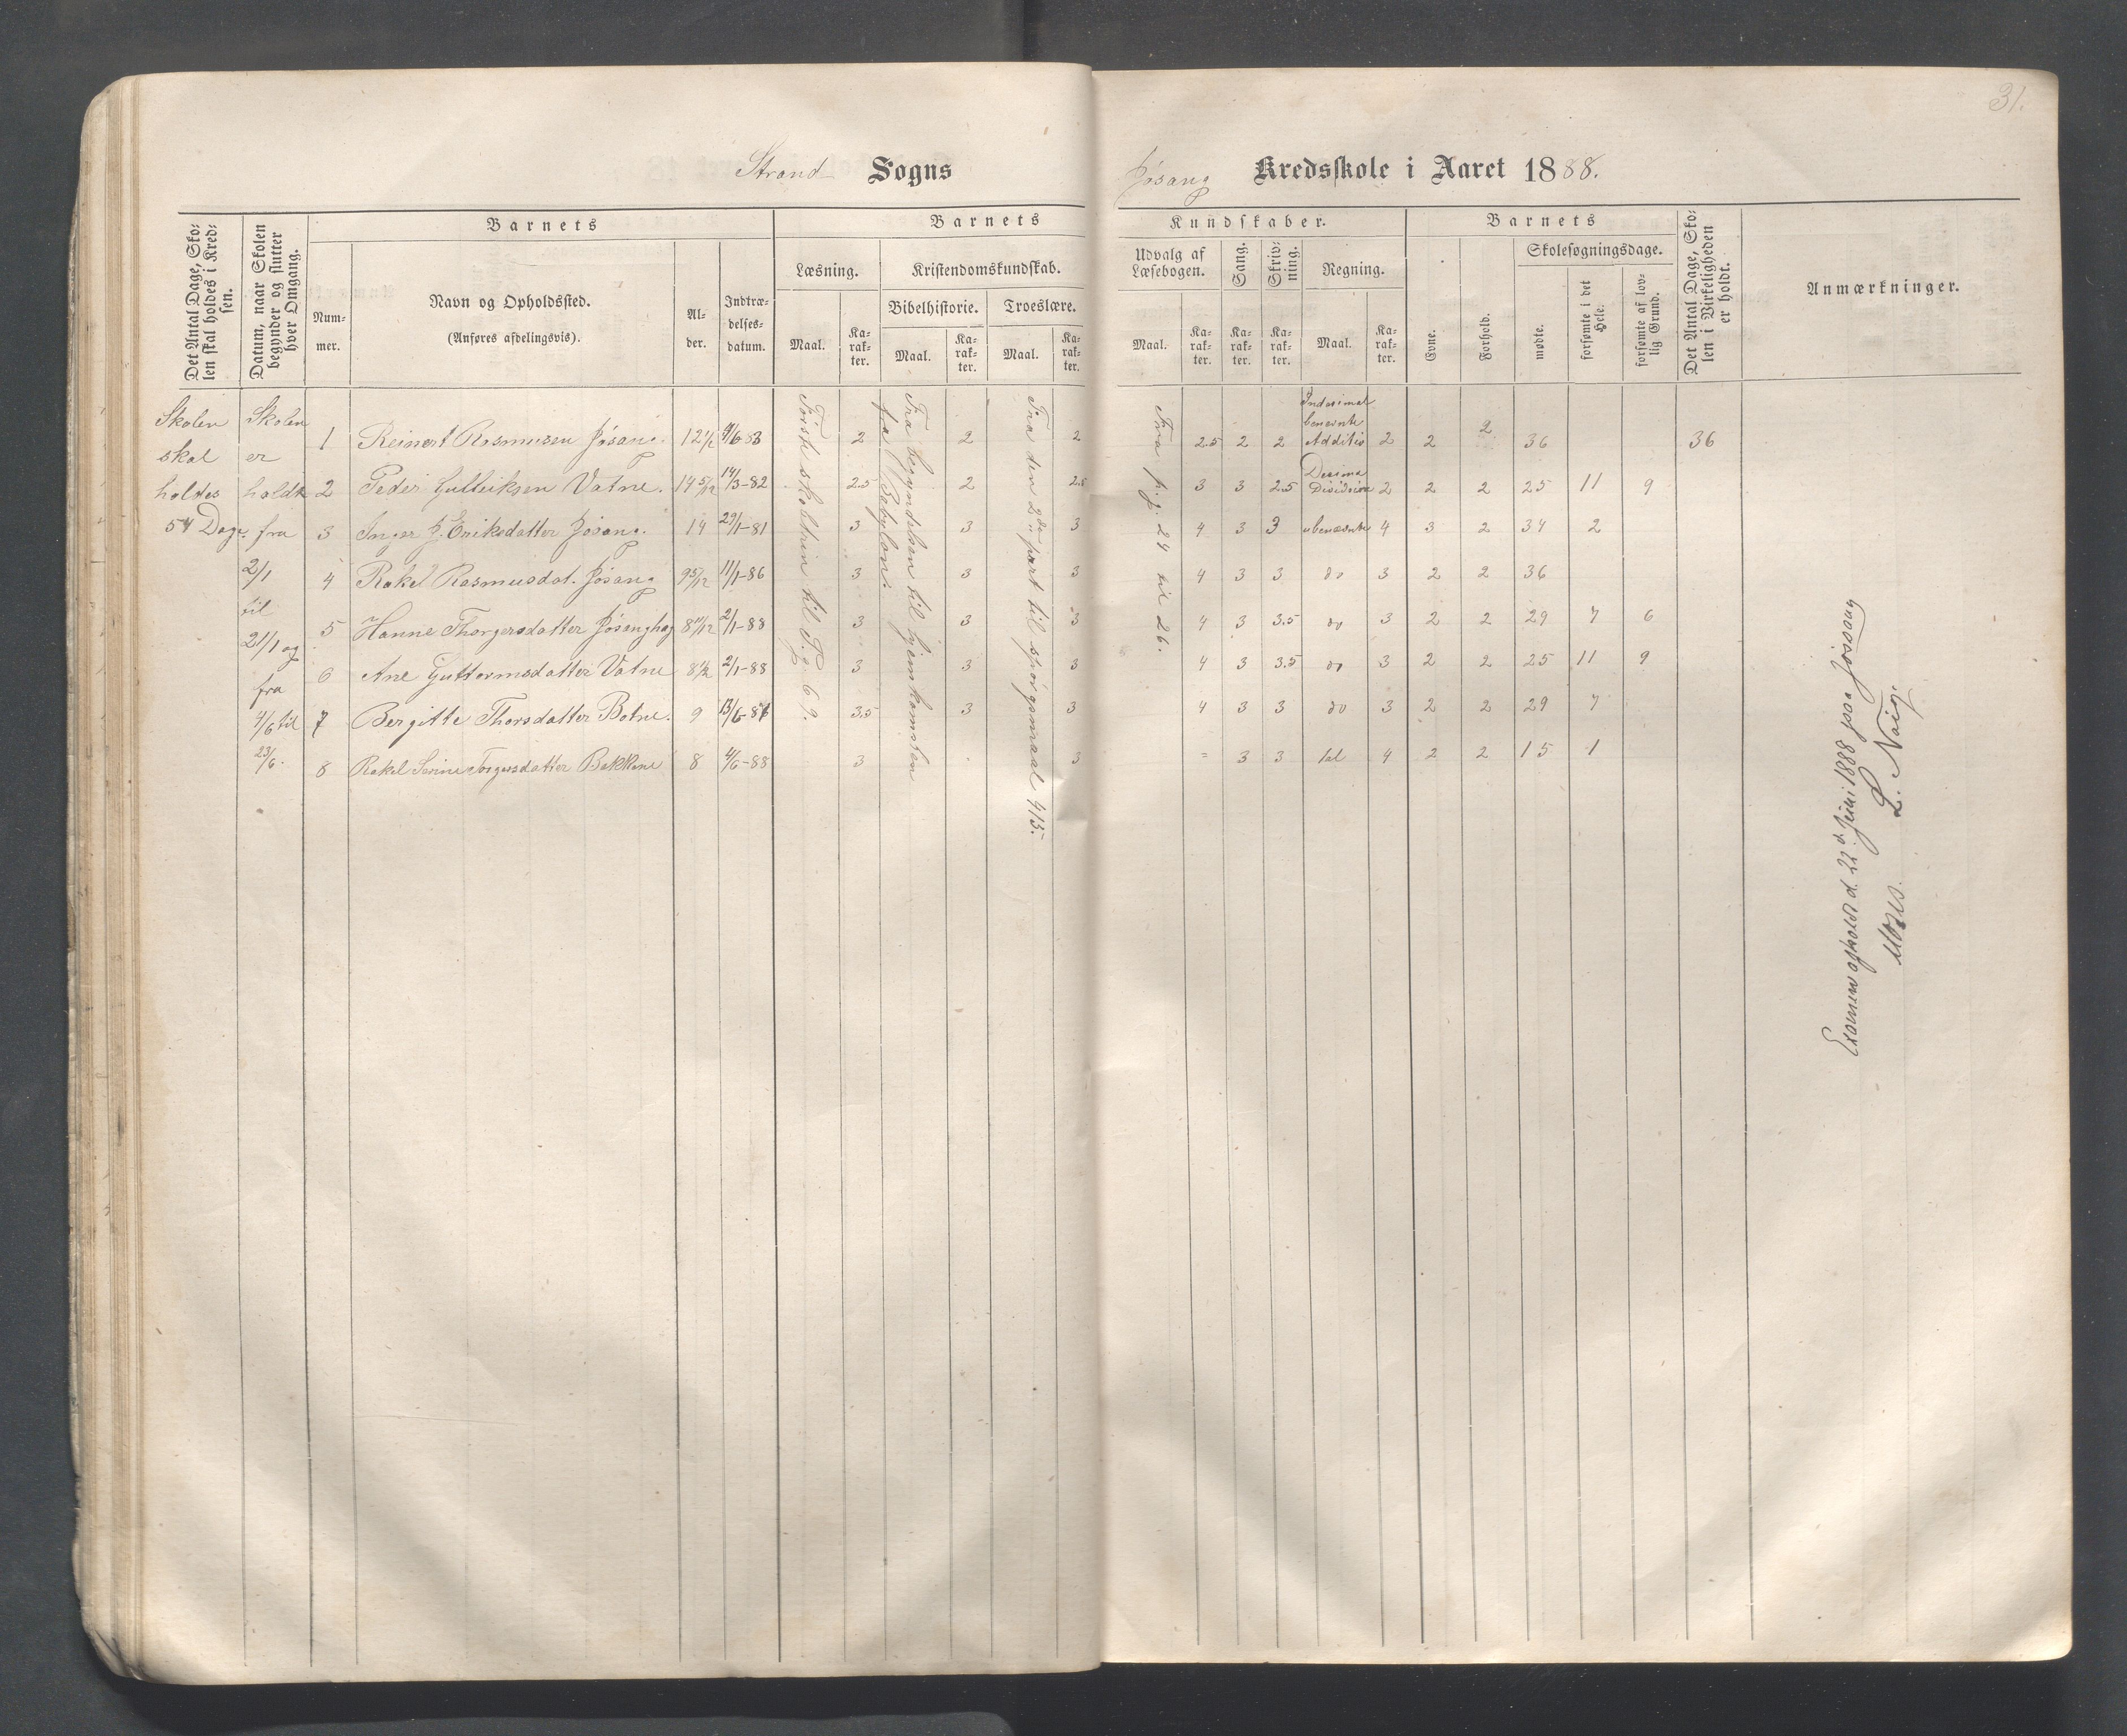 31.
Strand Sogns
Jøsang Kredsskole i Aaret 1888.
Det Antal Dage, Sko-
len skal holdes i Kred-
sen.
Datum, naar Skolen
begynder og slutter
hver Omgang.
Barnets
Num-
mer.
Navn og Opholdssted.
(Anføres afdelingsvis).
Al-
der.
Indtræ-
delses-
datum.
Barnets
Læsning.
Maal.
Ka-
rak-
ter.
Kristendomskundskab.
Bibelhistorie.
Maal.
Ka-
rak-
ter.
Troeslære.
Maal.
Ka-
rak-
ter.
Kundskaber.
Udvalg af
Læsebogen.
Maal.
Ka-
rak-
ter.
Sang.
Ka-
rak-
ter.
Skriv-
ning.
Ka-
rak-
ter.
Regning.
Maal.
Ka-
rak-
ter.
Barnets
Evne.
Forhold.
Skolesøgningsdage.
mødte.
forsømte i det
Hele.
forsømte af lov-
lig Grund.
Det Antal Dage, Sko-
len i Virkeligheden
er holdt.
Anmærkninger.
Skolen
skal
holdes
54 Dage.
Skolen
er
holdt
fra
2/1
til
21/1 og
fra
4/6 til
23/6.
Første skoletrin til P. g. 69.
Fra begyndelsen til hjemkomsten
fra Babylon.
Fra den 2den part til spørgsmaal 415.
Fra p. g. 24 til 26.
1 Reinert Rasmusen Jøsang. 12 1/2 4/6-83 2 2 2 2.5 2 2 benevnte Additio 2 2 2 36 36
2 Peder Gutteiksen Vatne. 14 5/12 14/3-82 2.5 2 2.5 3 3 2.5 Desima Division 2 2 2 25 11 9
3 Inger J. Eriksdatter Jøsang. 14 29/1-81 3 3 3 4 3 3 ubenævnte 4 3 2 34 2
4 Rakel Rasmusdat. Jøsang 9 5/12 11/1-86 3 3 3 4 3 3 do 3 2 2 36
5 Hanne Thorgersdatter Jøsanghag 8 11/12 2/1-88 3 3 3 4 3 3.5 do 3 2 2 29 7 6
6 Ane Guttormsdatter Vatne 8 1/2 2/1-88 3 3 3 4 3 3.5 do 3 2 2 25 11 9
7 Bergitte Thorsdatter Botne. 9 13/6-87 3.5 3 3 4 3 3 do 3 2 2 29 7
8 Rakel Serine Torgersdatter Bakkene 8 4/6-88 3 3 " 3 3 tal 4 2 2 15 1
Examen afholdt d. 22de Juni 1888 paa Jøssang
L. Naig.